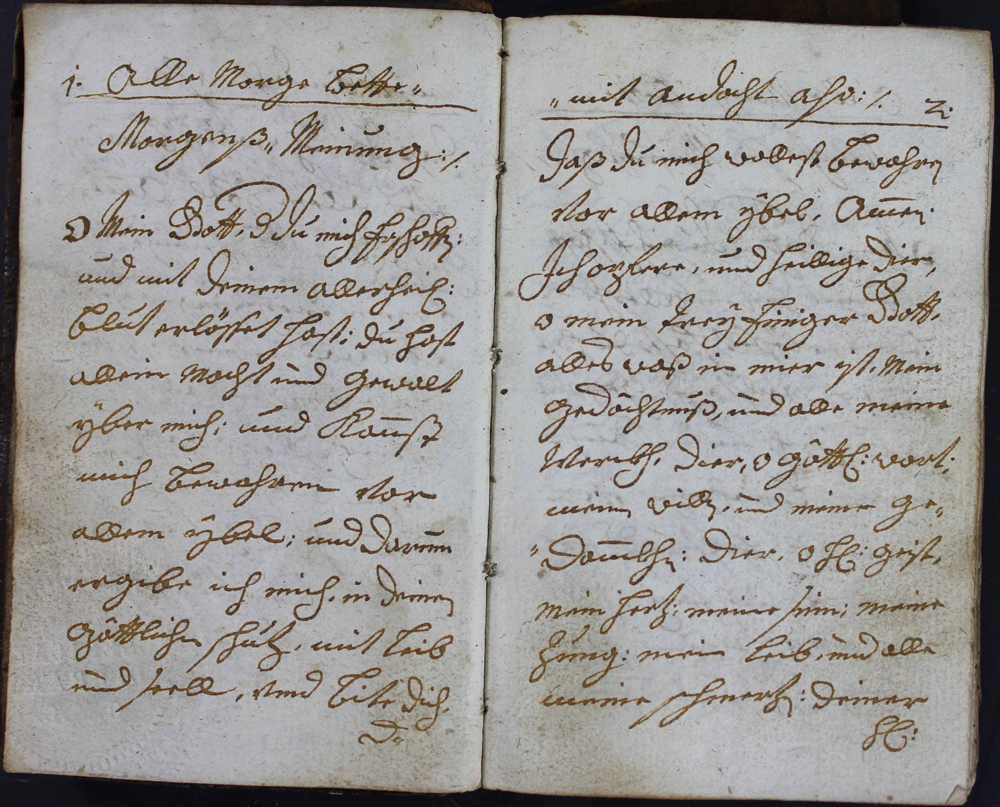 1. Alle Morge bette„
Morgenß„ Meinung:/.
O Mein Gott, d du mich erschaffen:
und mit deinem allerheil:
blut erlösset hast: du hast
allein Macht und gewalt
yber mich: und Kanst
mich bewahren vor
allem ybel: und darum
ergibe ich mich, in deinen
göttlichen schutz, mit leib
und seell, und bite dich,
D„
„mit andacht also:/. 2:
Daß du mich wollest bewahren
vor allem ybel, Amen.
Ich opfere, und heillige dier,
o mein drey Einiger Gott,
alles waß in mier ist, Mein
gedächtnuß, und alle meine
Werckh, dier, o göttl: wort:
meinen willen, und meine ge„
„danckhen: dier, o hl: geist,
mein hertz: meine sinn: meine
Zung: mein leib, und alle
meine schmertzen: deiner
hl: